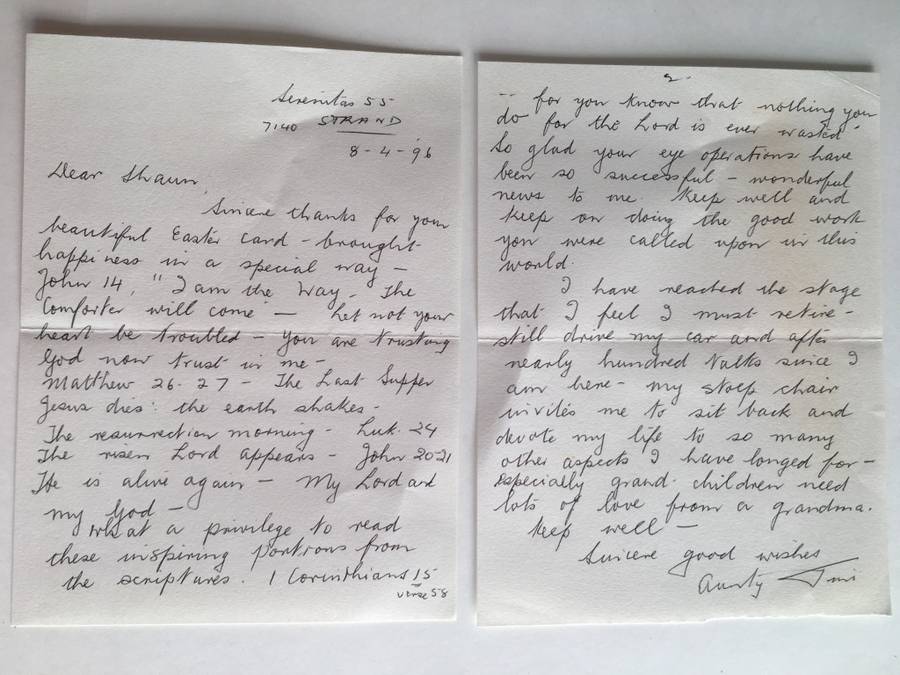 Serenitas 55
7140 STRAND
8-4-96
Dear Shaun,
Sincere thanks for your
beautiful Easter card - brought
happiness in a special way -
John 14, "I am the Way - The
Comforter will come - Let not your
heart be troubled - you are trusting
God now trust in me -
Matthew 26-27 - The Last Supper
Jesus dies: the earth shakes -
The resurrection morning - Luk. 24
The risen Lord appears - John 20-21
He is alive again - My Lord and
my God -
What a privilege to read
these inspiring portions from
the scriptures. 1 Corinthians 15
verse 58
2.
-- for you know that nothing you
do for the Lord is ever wasted"
So glad your eye operations have
been so successful - wonderful
news to me. Keep well and
keep on doing the good work
you were called upon in this
world.
I have reached the stage
that I feel I must retire -
still drive my car and after
nearly hundred talks since I
am here - my stoep chair
invites me to sit back and
devote my life to so many
other aspects I have longed for -
especially grand-children need
lots of love from a grandma.
Keep well -
Sincere good wishes
Aunty